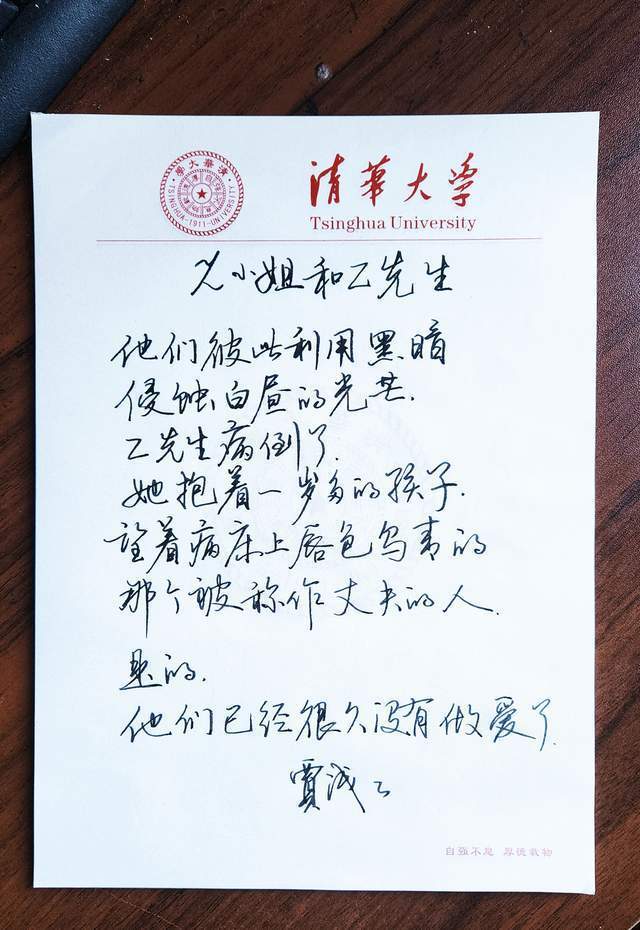 清華大學
TSINGHUA-1911-UNIVERSITY
清華大学
Tsinghua University
小姐和Z先生
他们彼此利用黑暗
侵蚀白昼的光芒.
Z先生病倒了.
她抱着一岁多的孩子.
望着病床上唇色乌青的
那个被称作丈夫的人.
是的.
他们已经很久没有做爱了.
賈浅浅
自强不息 厚德载物